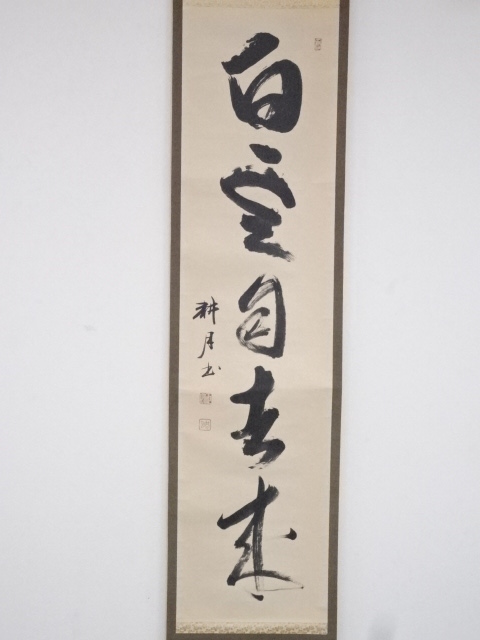 白雲自去来
耕月書